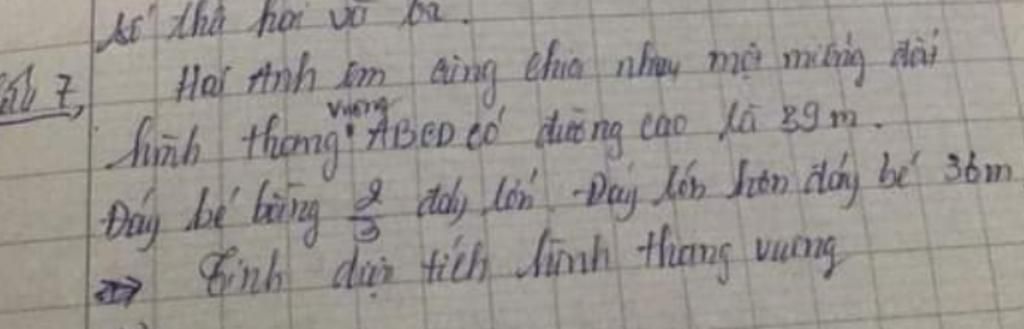 số thứ hai và ba.
Câu 7, Hai Anh Em cùng chia nhau một miếng đất
hình thang vuông ABCD có đường cao là 39m.
Đáy bé bằng 2/3 đáy lớn. Đáy lớn hơn đáy bé 36m
=> Tính diện tích hình thang vuông